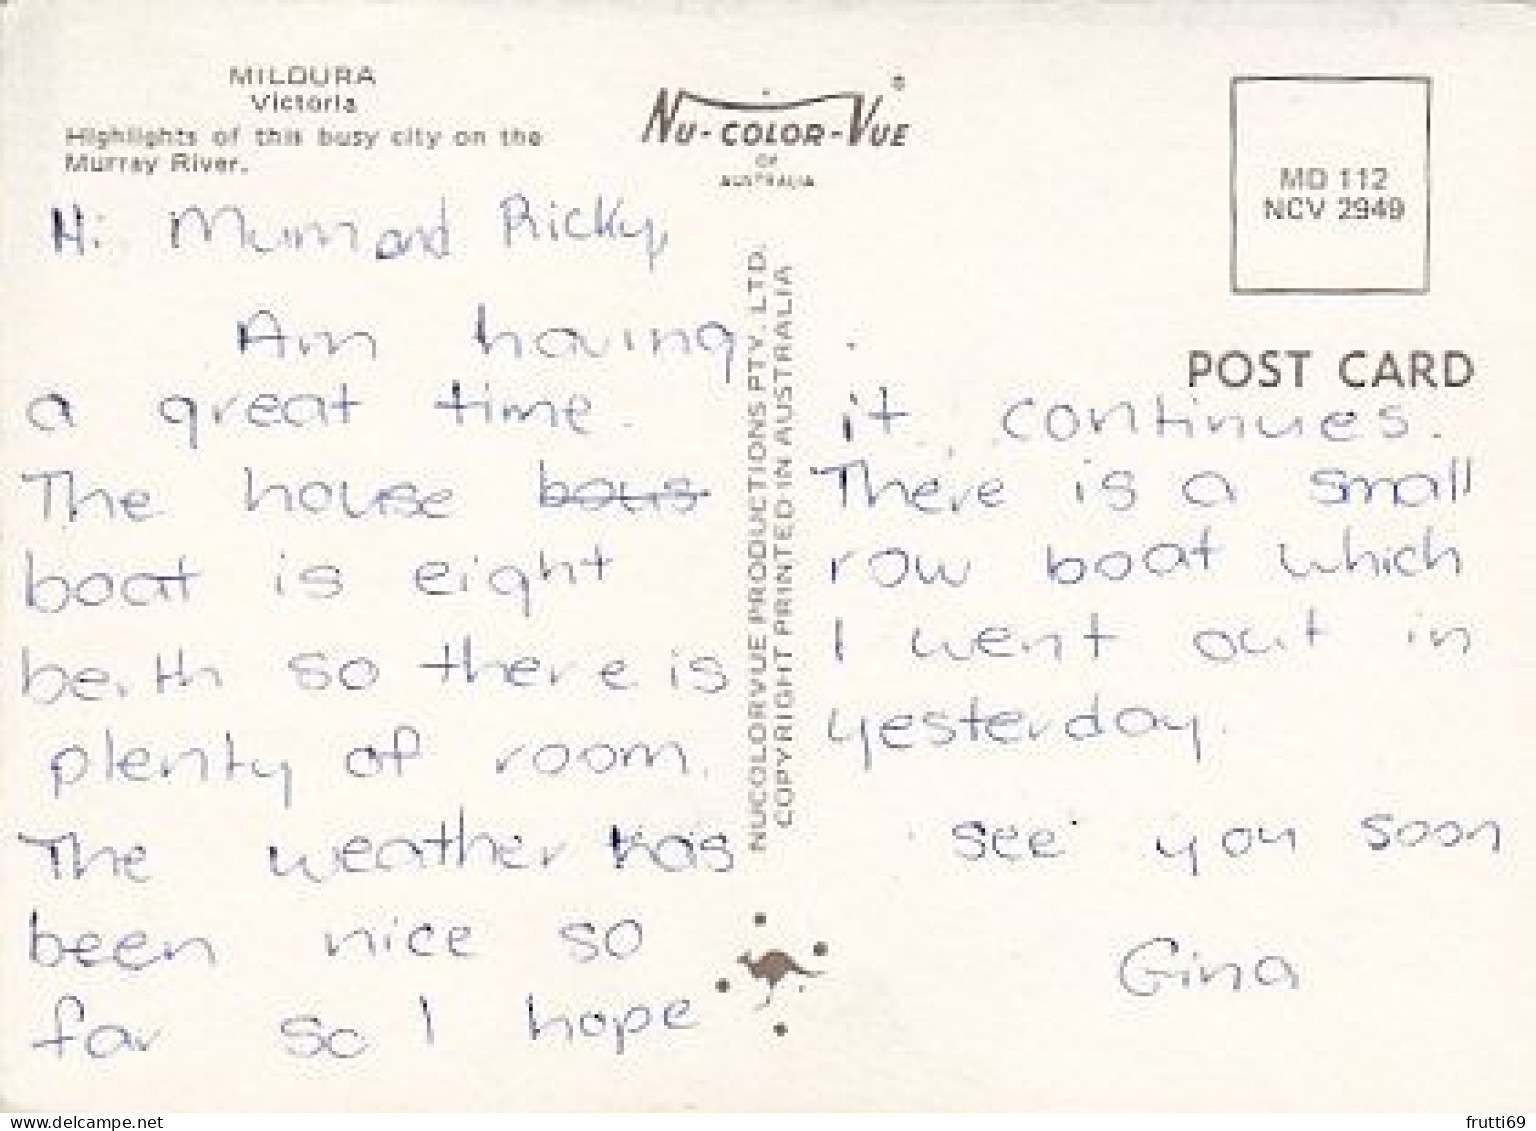 MILDURA
Victoria
Highlights of this busy city on the
Murray River.
NU-COLOR-VUE ®
OF
AUSTRALIA
MD 112
NCV 2949
POST CARD
NUCOLORVUE PRODUCTIONS PTY. LTD.
COPYRIGHT PRINTED IN AUSTRALIA
Hi Mum and Ricky,
Am having
a great time.
The house bous
boat is eight
berth so there is
plenty of room.
The weather has
been nice so
far so I hope
it continues.
There is a small
row boat which
I went out in
yesterday.
see you soon
Gina
frutti69